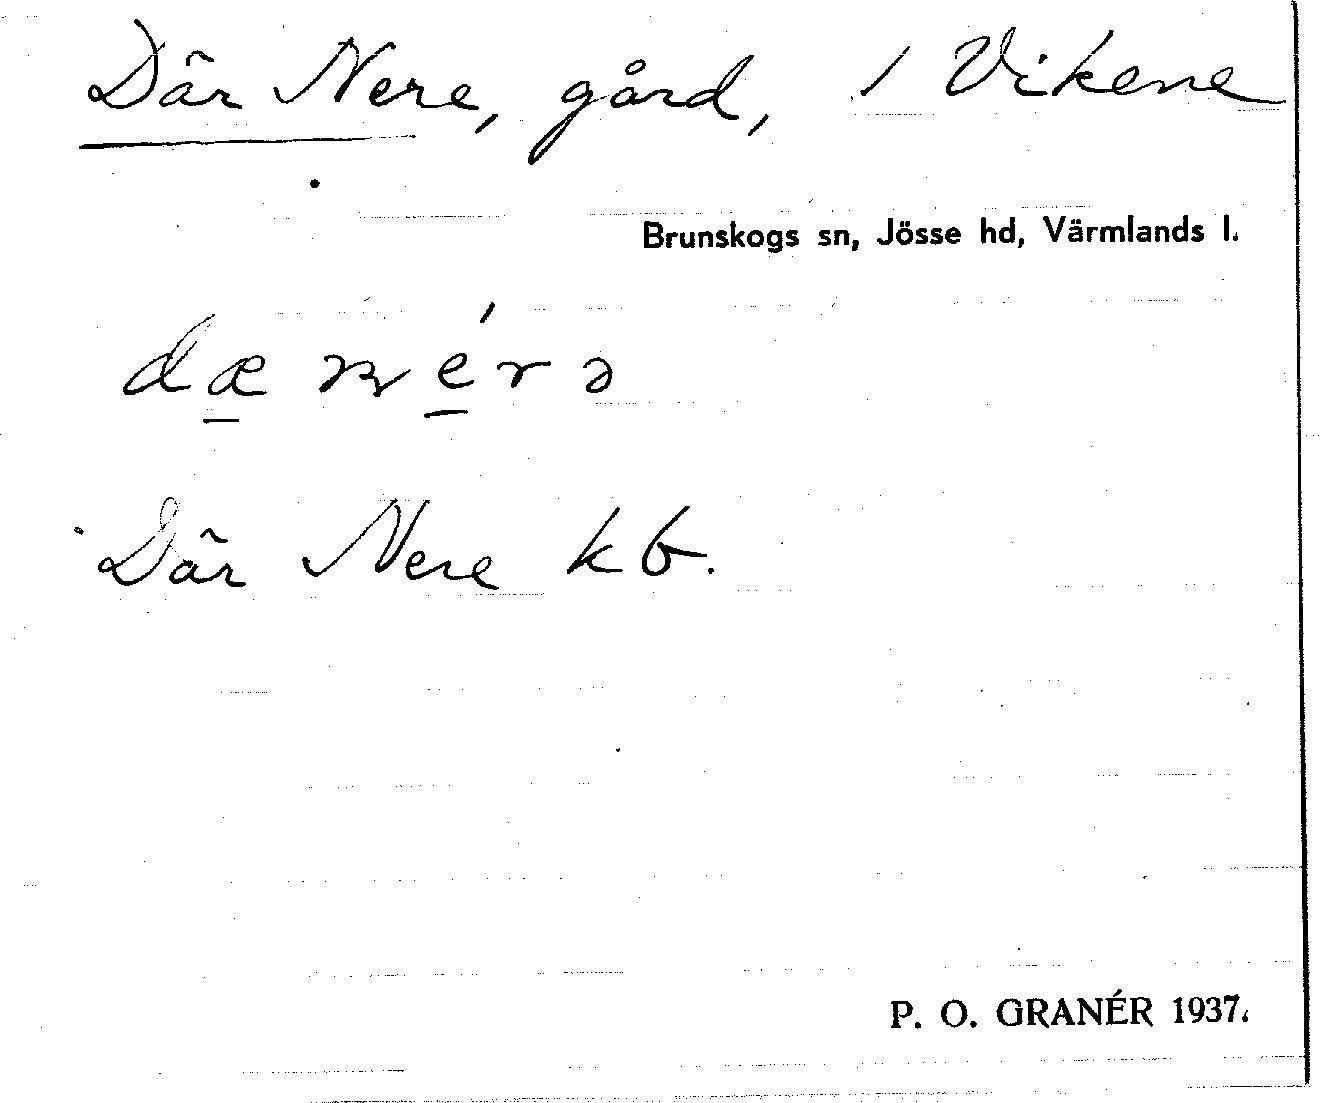 Där Nere, gård, i Vikene
Brunskogs sn, Jösse hd, Värmlands l.
dæ nérə
Där Nere kb.
P. O. GRANÉR 1937.